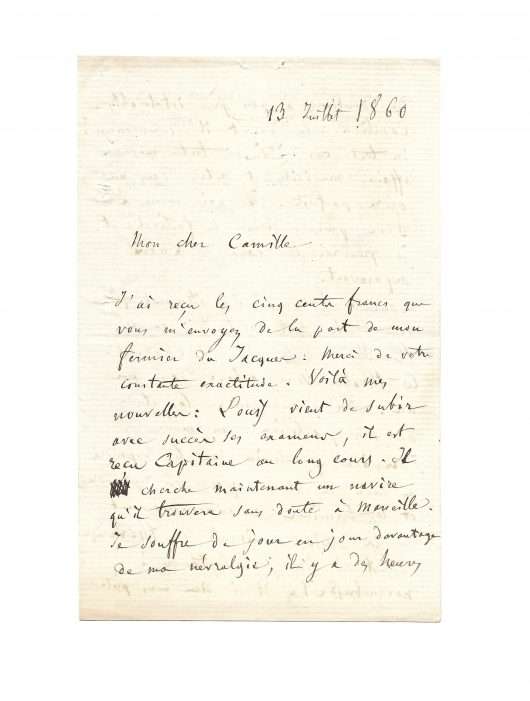 13 Juillet 1860
Mon cher Camille
J'ai reçu les cinq cents francs que
vous m'envoyez de la part de mon
fermier du Jacquer : Merci de votre
constante exactitude. Voilà mes
nouvelles : Louis vient de subir
avec succès ses examens, il est
reçu Capitaine au long cours. Il
cherche maintenant un navire
qu'il trouvera sans doute à Marseille.
Je souffre de jour en jour davantage
de ma névralgie ; il y a des heures